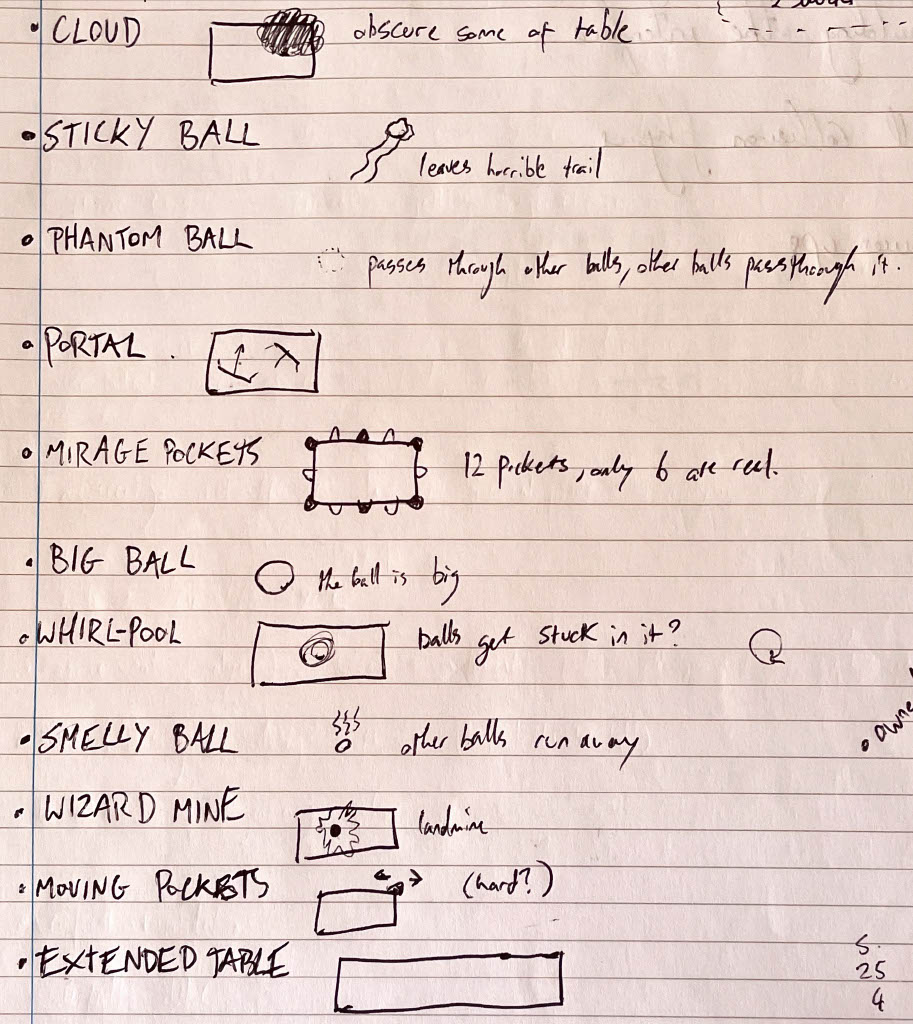 • CLOUD obscure some of table
• STICKY BALL
leaves horrible trail
• PHANTOM BALL
passes through other balls, other balls pass through it.
• PORTAL
• MIRAGE POCKETS 12 pockets, only 6 are real.
• BIG BALL the ball is big
• WHIRL-POOL balls get stuck in it?
• SMELLY BALL other balls run away
• WIZARD MINE landmine
• MOVING POCKETS (hard?)
• EXTENDED TABLE
5.
25
4